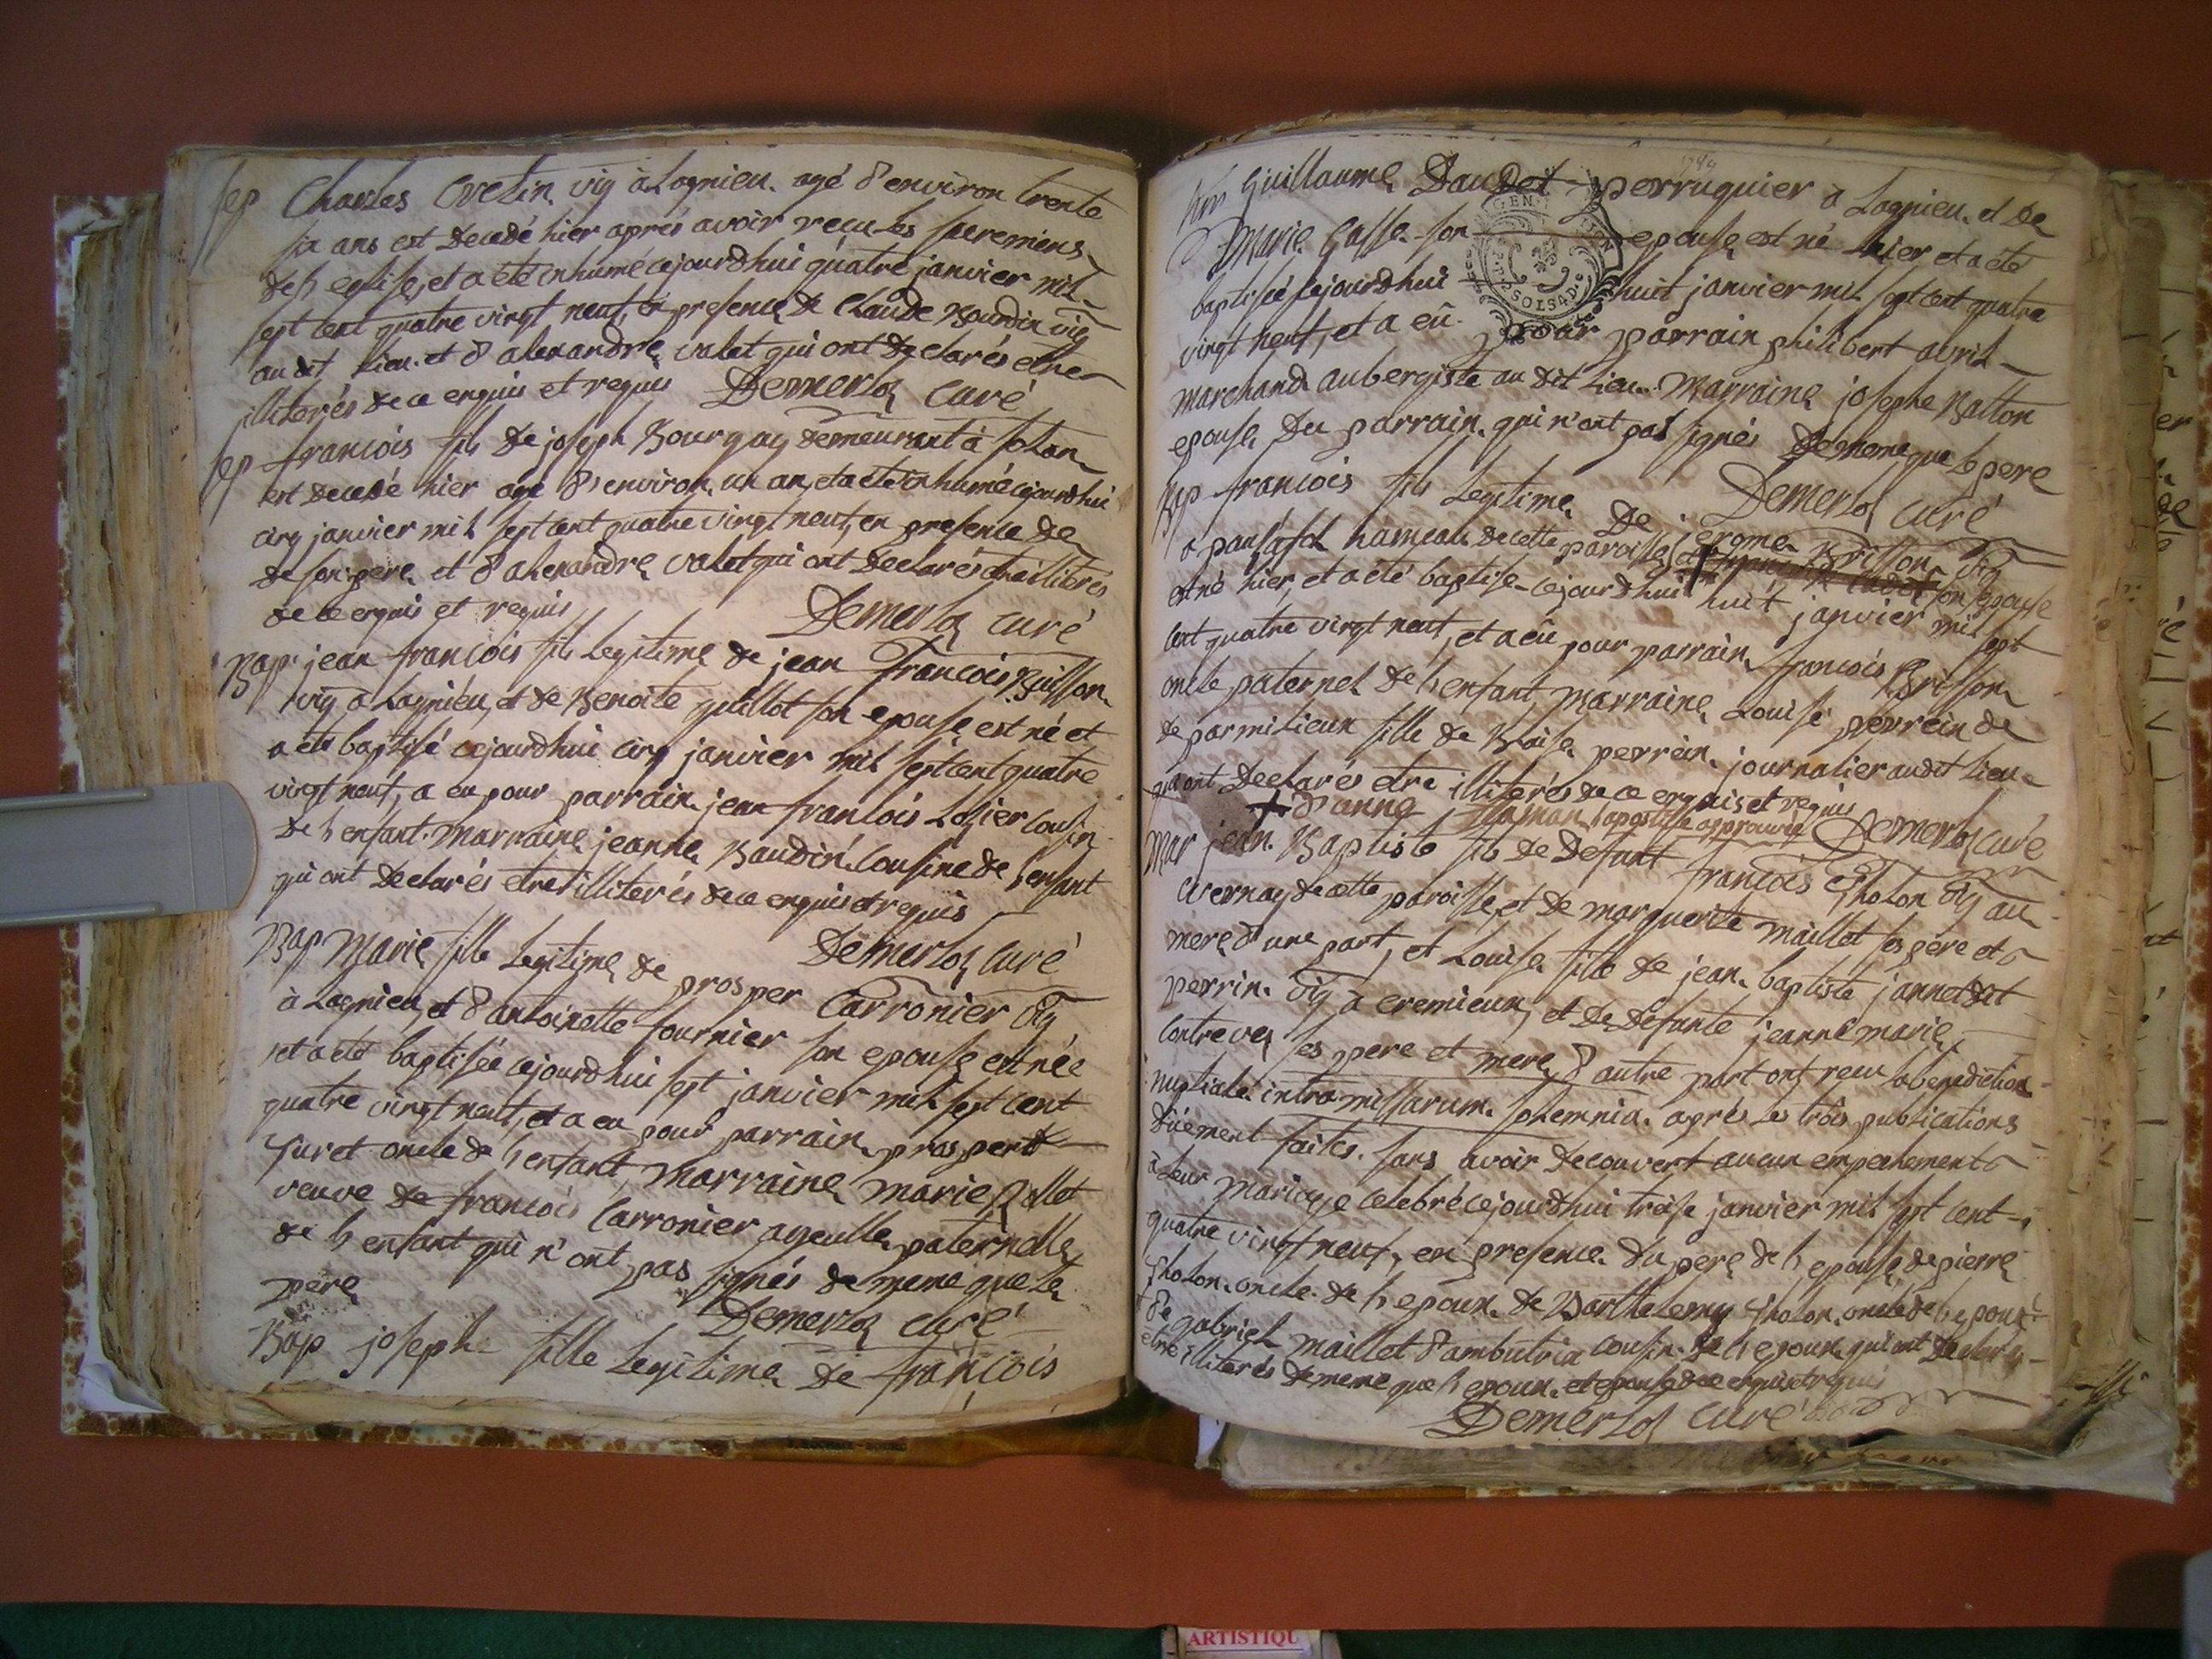 sep Charles Ovetin vig à Lagnieu. agé d'environ trente
six ans est decedé hier aprés avoir recu les sacremens
de l'eglise, et a été inhumé cejourdhui quatre janvier mil
sept cent quatre vingt neuf, en presence de Claude Bourdin vig
au dit Lieu. et d'alexandre valet qui ont declarés etre
illiterés de ce enquis et requis Demerloz curé
sep francois fils de joseph Bourgay demeurant à
est decedé hier agé d'environ un an, et a été inhumé cejourdhui
cinq janvier mil sept cent quatre vingt neuf, en presence de
de son pere et d'alexandre valet qui ont declarés etre illiterés
de ce enquis et requis Demerloz curé
Bap jean francois fils Legitime de jean francois Buisson
vig a Lagnieu, et de Benoite guillot son epouse est né et
a été baptisé cejourdhui cinq janvier mil sept cent quatre
vingt neuf, a eu pour parrain jean francois Lozier cousin
de l'enfant. marraine jeanne Baudin cousine de l'enfant
qui ont declarés etre illiterés de ce enquis et requis
Demerloz curé
Bap Marie fille Legitime de prosper Carronier vig
à Lagnieu, et d'antoinette fournier son epouse est née
et a été baptisée cejourdhui sept janvier mil sept cent
quatre vingt neuf, et a eu pour parrain prosper
Juret oncle de l'enfant, marraine marie
veuve de francois Carronier ayeulle paternelle
de l'enfant qui n'ont pas signés de meme que le
pere Demerloz curé
Bap josephe fille Legitime de françois
Guillaume Daudet perruquier a Lagnieu. et de
Marie Gasse son epouse est né hier et a été
baptisée cejourdhui huit janvier mil sept cent quatre
vingt neuf, et a eû pour parrain philibert avril
marchand aubergiste au dit Lieu. Marraine josephe Batton
epouse du parrain. qui n'ont pas signés de meme que le pere
Demerloz curé
Bap francois fils Legitime de jerome Brisson vig
a hameau de cette paroisse, et + son epouse
est né hier, et a été baptise cejourdhui huit janvier mil sept
cent quatre vingt neuf, et a eû pour parrain francois Brisson
oncle paternel de l'enfant, marraine Louise perrein de
de parmilieux fille de Blaise perrein journalier audit Lieu
qui ont declarés etre illiterés de ce enquis et requis
+ d'anne l'apostille approuvée Demerloz curé
Mar jean Baptiste fils de defunt francois Cholon vig au
vernay de cette paroisse, et de marguerite maillet ses pere et
mere d'une part, et Louise fille de jean baptiste jannet dit
perrin vig à cremieux, et de defunte jeanne marie
Contrevez ses pere et mere d'autre part ont recu la benediction
nuptiale intra missarum solemnia. aprés les trois publications
düement faites. sans avoir decouvert aucun empechement
à Leur mariage celebré cejourdhui treise janvier mil sept cent
quatre vingt neuf, en presence du pere de l'epouse, de pierre
Cholon oncle de l'epoux de Barthelemy Cholon oncle de l'epoux
de gabriel maillet d'ambutrix cousin de l'epoux qui ont declarés
etre illiterés de meme que l'epoux et epouse de ce enquis et requis
Demerloz curé
ARTISTIQU